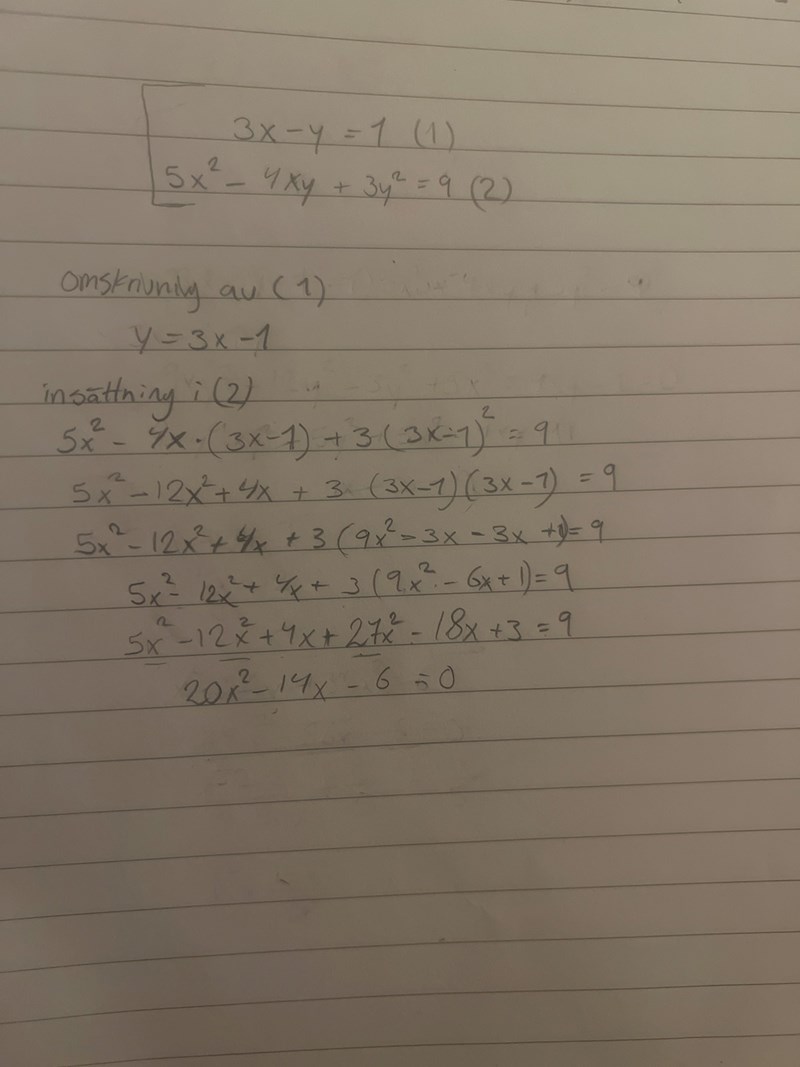 3x-y = 1 (1)
5x² - 4xy + 3y² = 9 (2)
omskrivning av (1)
y = 3x - 1
insättning i (2)
5x² - 4x·(3x-1) + 3(3x-1)² = 9
5x² - 12x² + 4x + 3 (3x-1)(3x-1) = 9
5x² - 12x² + 4x + 3 (9x² - 3x - 3x + 1) = 9
5x² - 12x² + 4x + 3 (9x² - 6x + 1) = 9
5x² - 12x² + 4x + 27x² - 18x + 3 = 9
20x² - 14x - 6 = 0